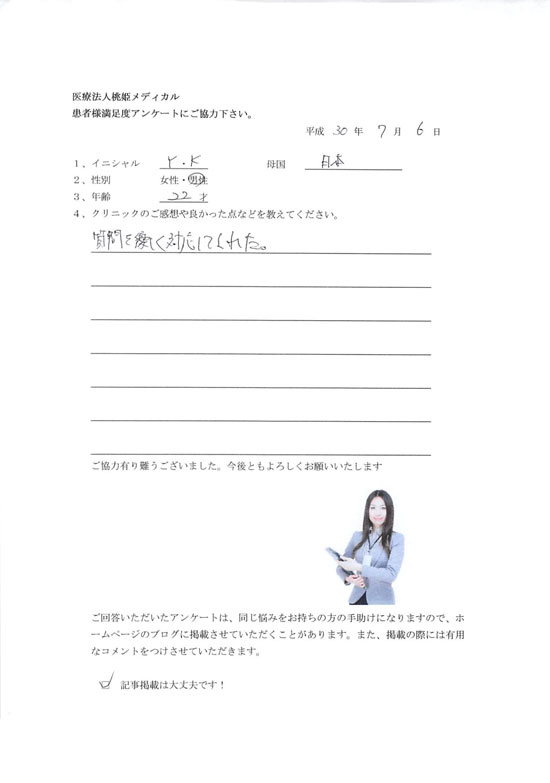 医療法人桃姫メディカル
患者様満足度アンケートにご協力下さい。
平成 30 年 7 月 6 日
1、イニシャル Y.K 母国 日本
2、性別 女性・男性
3、年齢 22 才
4、クリニックのご感想や良かった点などを教えてください。
質問を優しく対応してくれた。
ご協力有り難うございました。今後ともよろしくお願いいたします
ご回答いただいたアンケートは、同じ悩みをお持ちの方の手助けになりますので、ホ
ームページのブログに掲載させていただくことがあります。また、掲載の際には有用
なコメントをつけさせていただきます。
記事掲載は大丈夫です！